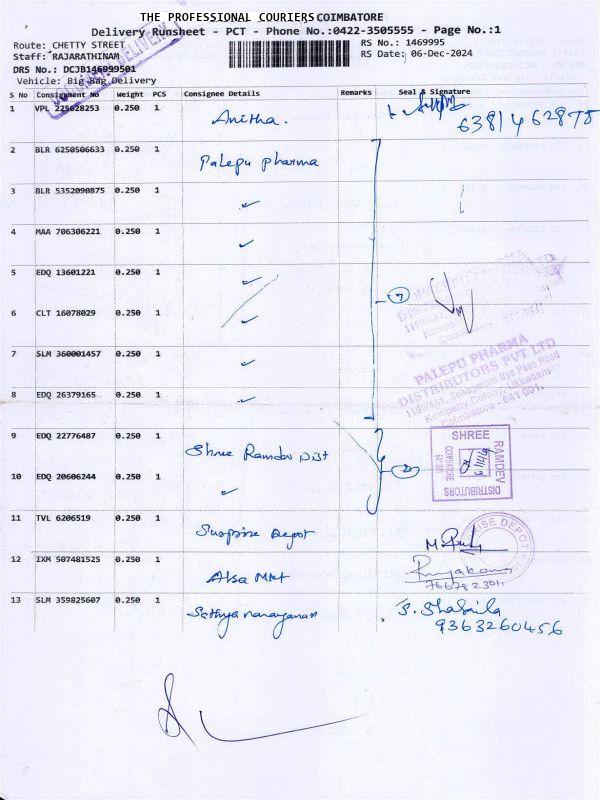 THE PROFESSIONAL COURIERS COIMBATORE
Delivery Runsheet - PCT - Phone No.:0422-3505555 - Page No.:1
Route: CHETTY STREET
RS No.: 1469995
Staff: RAJARATHINAM
RS Date: 06-Dec-2024
DRS No.: DCJB146999501
Vehicle: Big Bag Delivery
S No Consignment No Weight PCS Consignee Details Remarks Seal & Signature
1 VPL 225628253 0.250 1 Anitha. 6381462875
2 BLR 6250506633 0.250 1 Palepu pharma
3 BLR 5352090875 0.250 1 ✓
4 MAA 706306221 0.250 1 ✓
5 EDQ 13601221 0.250 1 ✓
7
6 CLT 16078029 0.250 1 ✓
7 SLM 360001457 0.250 1 ✓
PALEPU PHARMA
DISTRIBUTORS PVT LTD
8 EDQ 26379165 0.250 1 ✓
Coimbatore - 641 001.
9 EDQ 22776487 0.250 1 Shree Ramdev DBt
SHREE
RAMDEV
DISTRIBUTORS
COIMBATORE
10 EDQ 20606244 0.250 1 ✓ 2
11 TVL 6206519 0.250 1 Surprise Depot
12 IXM 507481525 0.250 1 Alsa Mkt
13 SLM 359825607 0.250 1 Sathya narayanan
9363260456